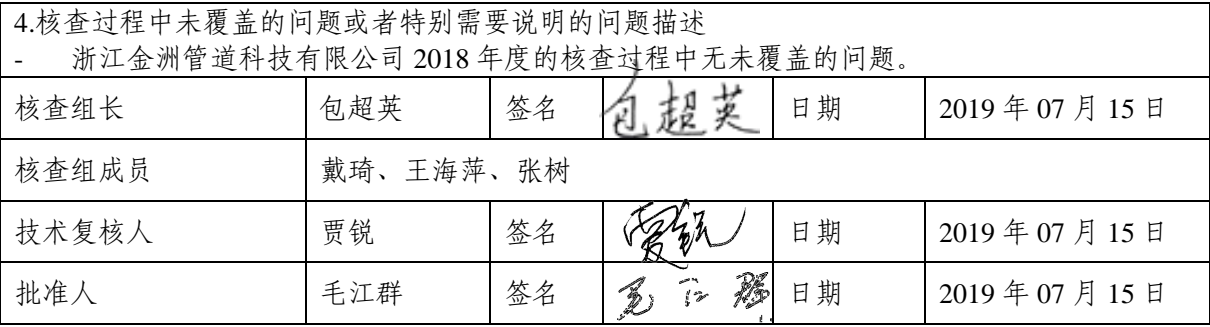 4.核查过程中未覆盖的问题或者特别需要说明的问题描述
- 浙江金洲管道科技有限公司 2018 年度的核查过程中无未覆盖的问题。
核查组长 包超英 签名 包超英 日期 2019 年 07 月 15 日
核查组成员 戴琦、王海萍、张树
技术复核人 贾锐 签名 贾锐 日期 2019 年 07 月 15 日
批准人 毛江群 签名 毛江群 日期 2019 年 07 月 15 日